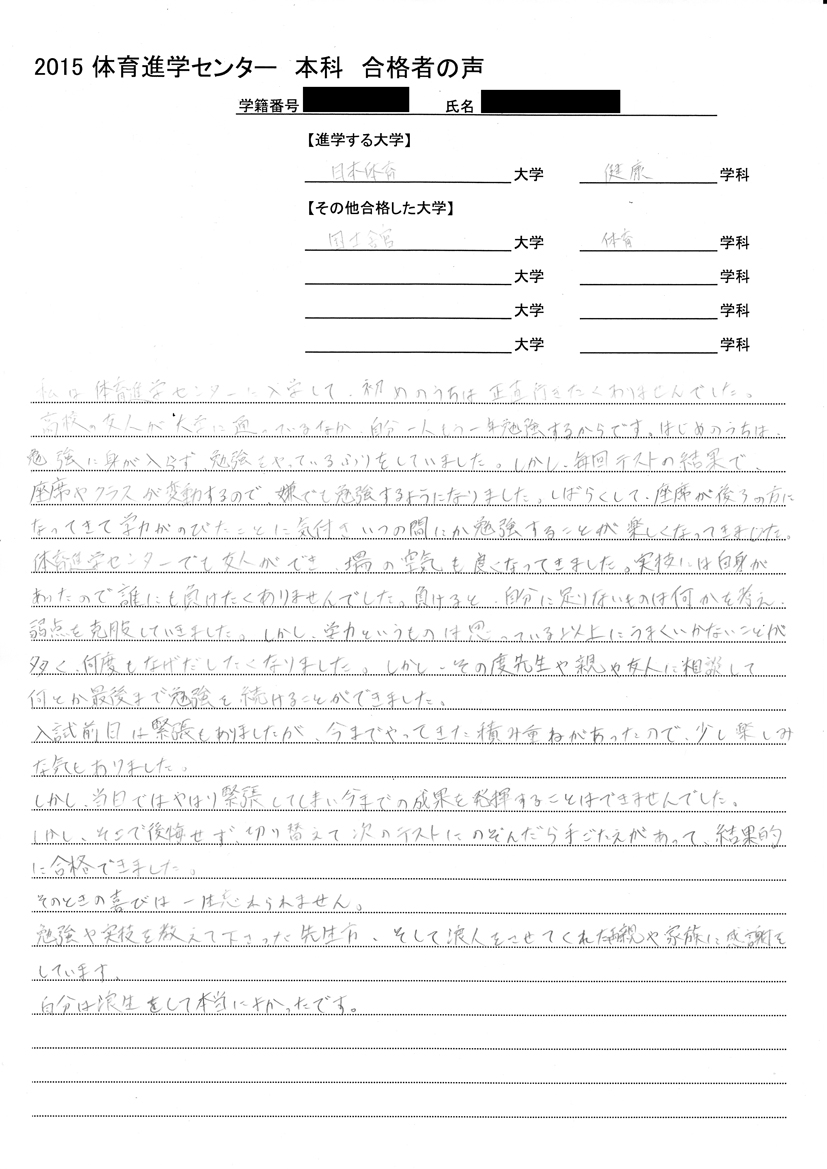 2015 体育進学センター 本科 合格者の声
学籍番号 氏名
【進学する大学】
日本体育 大学 健康 学科
【その他合格した大学】
国士舘 大学 体育 学科
大学 学科
大学 学科
大学 学科
私は体育進学センターに入学して、初めのうちは正直行きたくありませんでした。
高校の友人が大学に通っているなか、自分一人もう一年勉強するからです。はじめのうちは、
勉強に身が入らず勉強をやっているふりをしていました。しかし、毎回テストの結果で、
座席やクラスが変動するので、嫌でも勉強するようになりました。しばらくして、座席が後ろの方に
なってきて学力がのびたことに気付きいつの間にか勉強することが楽しくなってきました。
体育進学センターでも友人ができ、場の空気も良くなってきました。実技には自身が
あったので誰にも負けたくありませんでした。負けると、自分に足りないものは何かを考え、
弱点を克服していきました。しかし、学力というものは思っている以上にうまくいかないことが
多く、何度もなげだしたくなりました。しかし、その度先生や親や友人に相談して
何とか最後まで勉強を続けることができました。
入試前日は緊張もありましたが、今までやってきた積み重ねがあったので、少し楽しみ
な気もありました。
しかし、当日ではやはり緊張してしまい今までの成果を発揮することはできませんでした。
しかし、そこで後悔せず、切り替えて次のテストにのぞんだら手ごたえがあって、結果的
に合格できました。
そのときの喜びは一生忘れられません。
勉強や実技を教えて下さった先生方、そして浪人をさせてくれた両親や家族に感謝を
しています。
自分は浪生をして本当によかったです。